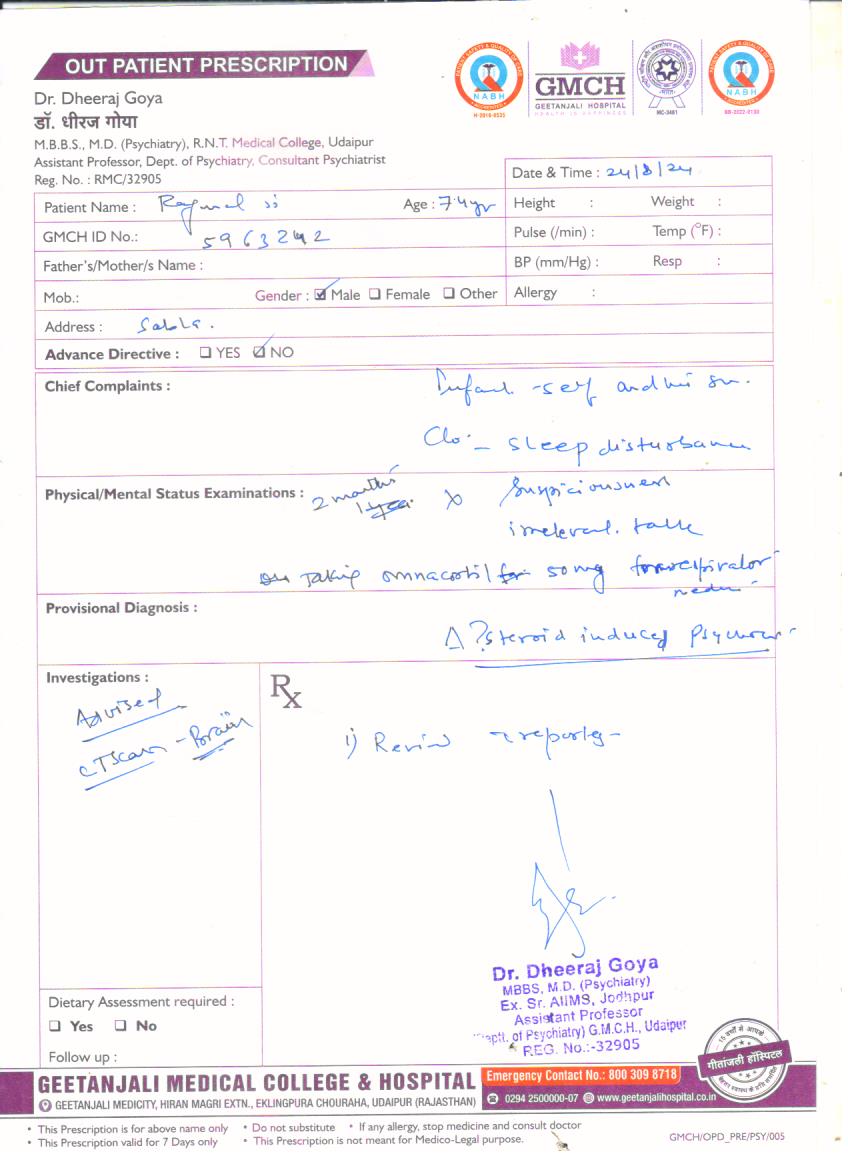 OUT PATIENT PRESCRIPTION
Dr. Dheeraj Goya
डॉ. धीरज गोया
M.B.B.S., M.D. (Psychiatry), R.N.T. Medical College, Udaipur
Assistant Professor, Dept. of Psychiatry, Consultant Psychiatrist
Reg. No. : RMC/32905
NABH
H-2018-0535
GMCH
GEETANJALI HOSPITAL
HEALTH IS HAPPINESS
MC-3481
NABH
BB-2022-0130
Date & Time : 24/8/24
Patient Name : Age : 74yr
Height : Weight :
GMCH ID No.: 5963242
Pulse (/min) : Temp (°F) :
Father's/Mother/s Name :
BP (mm/Hg) : Resp :
Mob.: Gender : Male Female Other
Allergy :
Address : Sabla.
Advance Directive : YES NO
Chief Complaints :
Infant - self and his son.
C/o - sleep disturbance
Physical/Mental Status Examinations : 2 months
1 year x Suspiciousness
irrelevant talk
Taking omnacortil 50mg for respirator
Provisional Diagnosis :
Δ ? steroid induced Psychosis
Investigations :
Advised
CT Scan - Brain
Rx
1) Review reports
Dr. Dheeraj Goya
MBBS, M.D. (Psychiatry)
Ex. Sr. AIIMS, Jodhpur
Assistant Professor
Deptt. of Psychiatry) G.M.C.H., Udaipur
REG. No.:-32905
Dietary Assessment required :
Yes No
Follow up :
गीतांजली हॉस्पिटल
GEETANJALI MEDICAL COLLEGE & HOSPITAL
Emergency Contact No.: 800 309 8718
GEETANJALI MEDICITY, HIRAN MAGRI EXTN., EKLINGPURA CHOURAHA, UDAIPUR (RAJASTHAN)
0294 2500000-07 www.geetanjalihospital.co.in
• This Prescription is for above name only • Do not substitute • If any allergy, stop medicine and consult doctor
• This Prescription valid for 7 Days only • This Prescription is not meant for Medico-Legal purpose.
GMCH/OPD_PRE/PSY/005